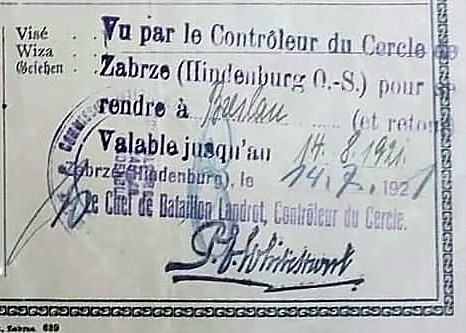 Visé . . Vu par le Contrôleur du Cercle de
Wiza . . Zabrze (Hindenburg O.-S.) pour se
Gesehen rendre à Breslau (et retour
Valable jusqu'au 14. 8. 1921.
Zabrze (Hindenburg), le 14. 7. 1921
Le Chef de Bataillon Landrot, Contrôleur du Cercle.
Zabrze 689